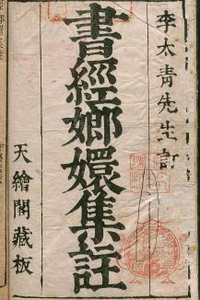 李太青先生訂
書經嫏嬛集註
天繪閣藏板